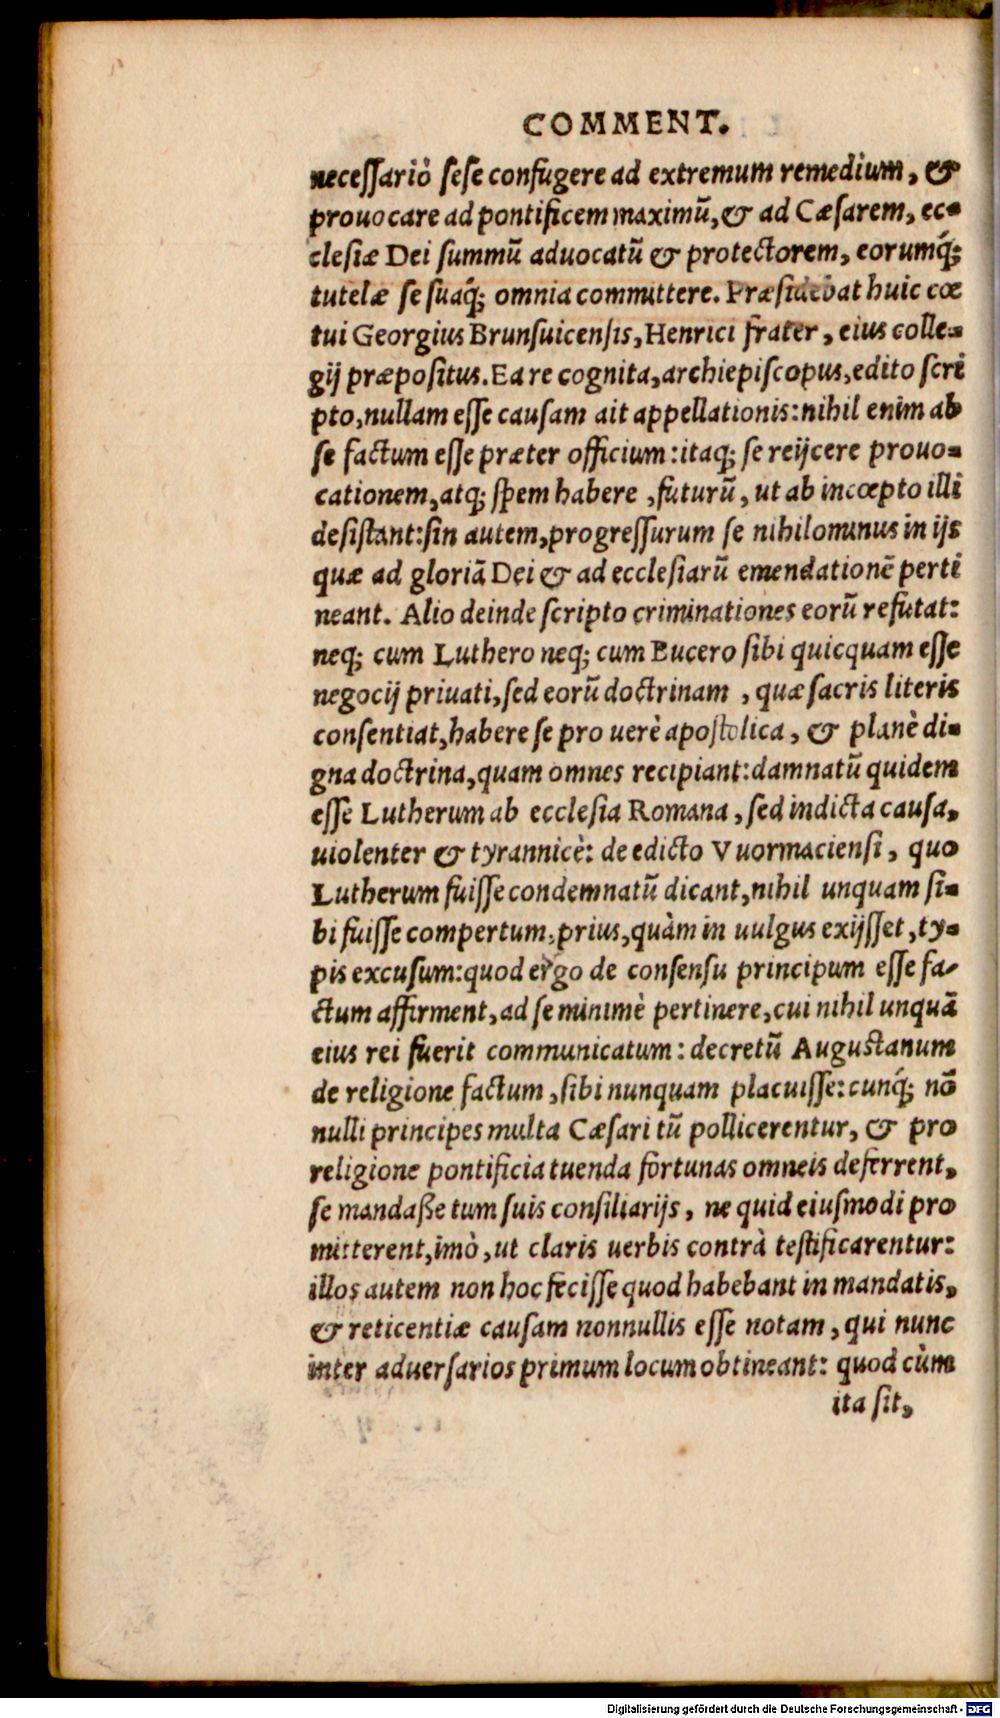 COMMENT.
necessariò sese confugere ad extremum remedium, &
prouocare ad pontificem maximū, & ad Cæsarem, ec-
clesiæ Dei summū aduocatū & protectorem, eorumq́;
tutelæ se suaq́; omnia committere. Præsidebat huic cœ
tui Georgius Brunsuicensis, Henrici frater, eius colle-
gij præpositus. Ea re cognita, archiepiscopus, edito scri
pto, nullam esse causam ait appellationis: nihil enim ab
se factum esse præter officium: itaq; se reijcere prouo-
cationem, atq; spem habere, futurū, ut ab incœpto illi
desistant: sin autem, progressurum se nihilominus in ijs
quæ ad gloriā Dei & ad ecclesiarū emendationē perti
neant. Alio deinde scripto criminationes eorū refutat:
neq; cum Luthero neq; cum Bucero sibi quicquam esse
negocij priuati, sed eorū doctrinam, quæ sacris literis
consentiat, habere se pro uerè apostolica, & planè di-
gna doctrina, quam omnes recipiant: damnatū quidem
esse Lutherum ab ecclesia Romana, sed indicta causa,
uiolenter & tyrannicè: de edicto Vuormaciensi, quo
Lutherum fuisse condemnatū dicant, nihil unquam si-
bi fuisse compertum, prius, quàm in uulgus exijsset, ty-
pis excusum: quod ergo de consensu principum esse fa-
ctum affirment, ad se minimè pertinere, cui nihil unquā
eius rei fuerit communicatum: decretū Augustanum
de religione factum, sibi nunquam placuisse: cunq́; nō
nulli principes multa Cæsari tū pollicerentur, & pro
religione pontificia tuenda fortunas omneis deferrent,
se mandaße tum suis consiliarijs, ne quid eiusmodi pro
mitterent, imò, ut claris uerbis contrà testificarentur:
illos autem non hoc fecisse quod habebant in mandatis,
& reticentiæ causam nonnullis esse notam, qui nunc
inter aduersarios primum locum obtineant: quod cùm
ita sit,
Digitalisierung gefördert durch die Deutsche Forschungsgemeinschaft - DFG